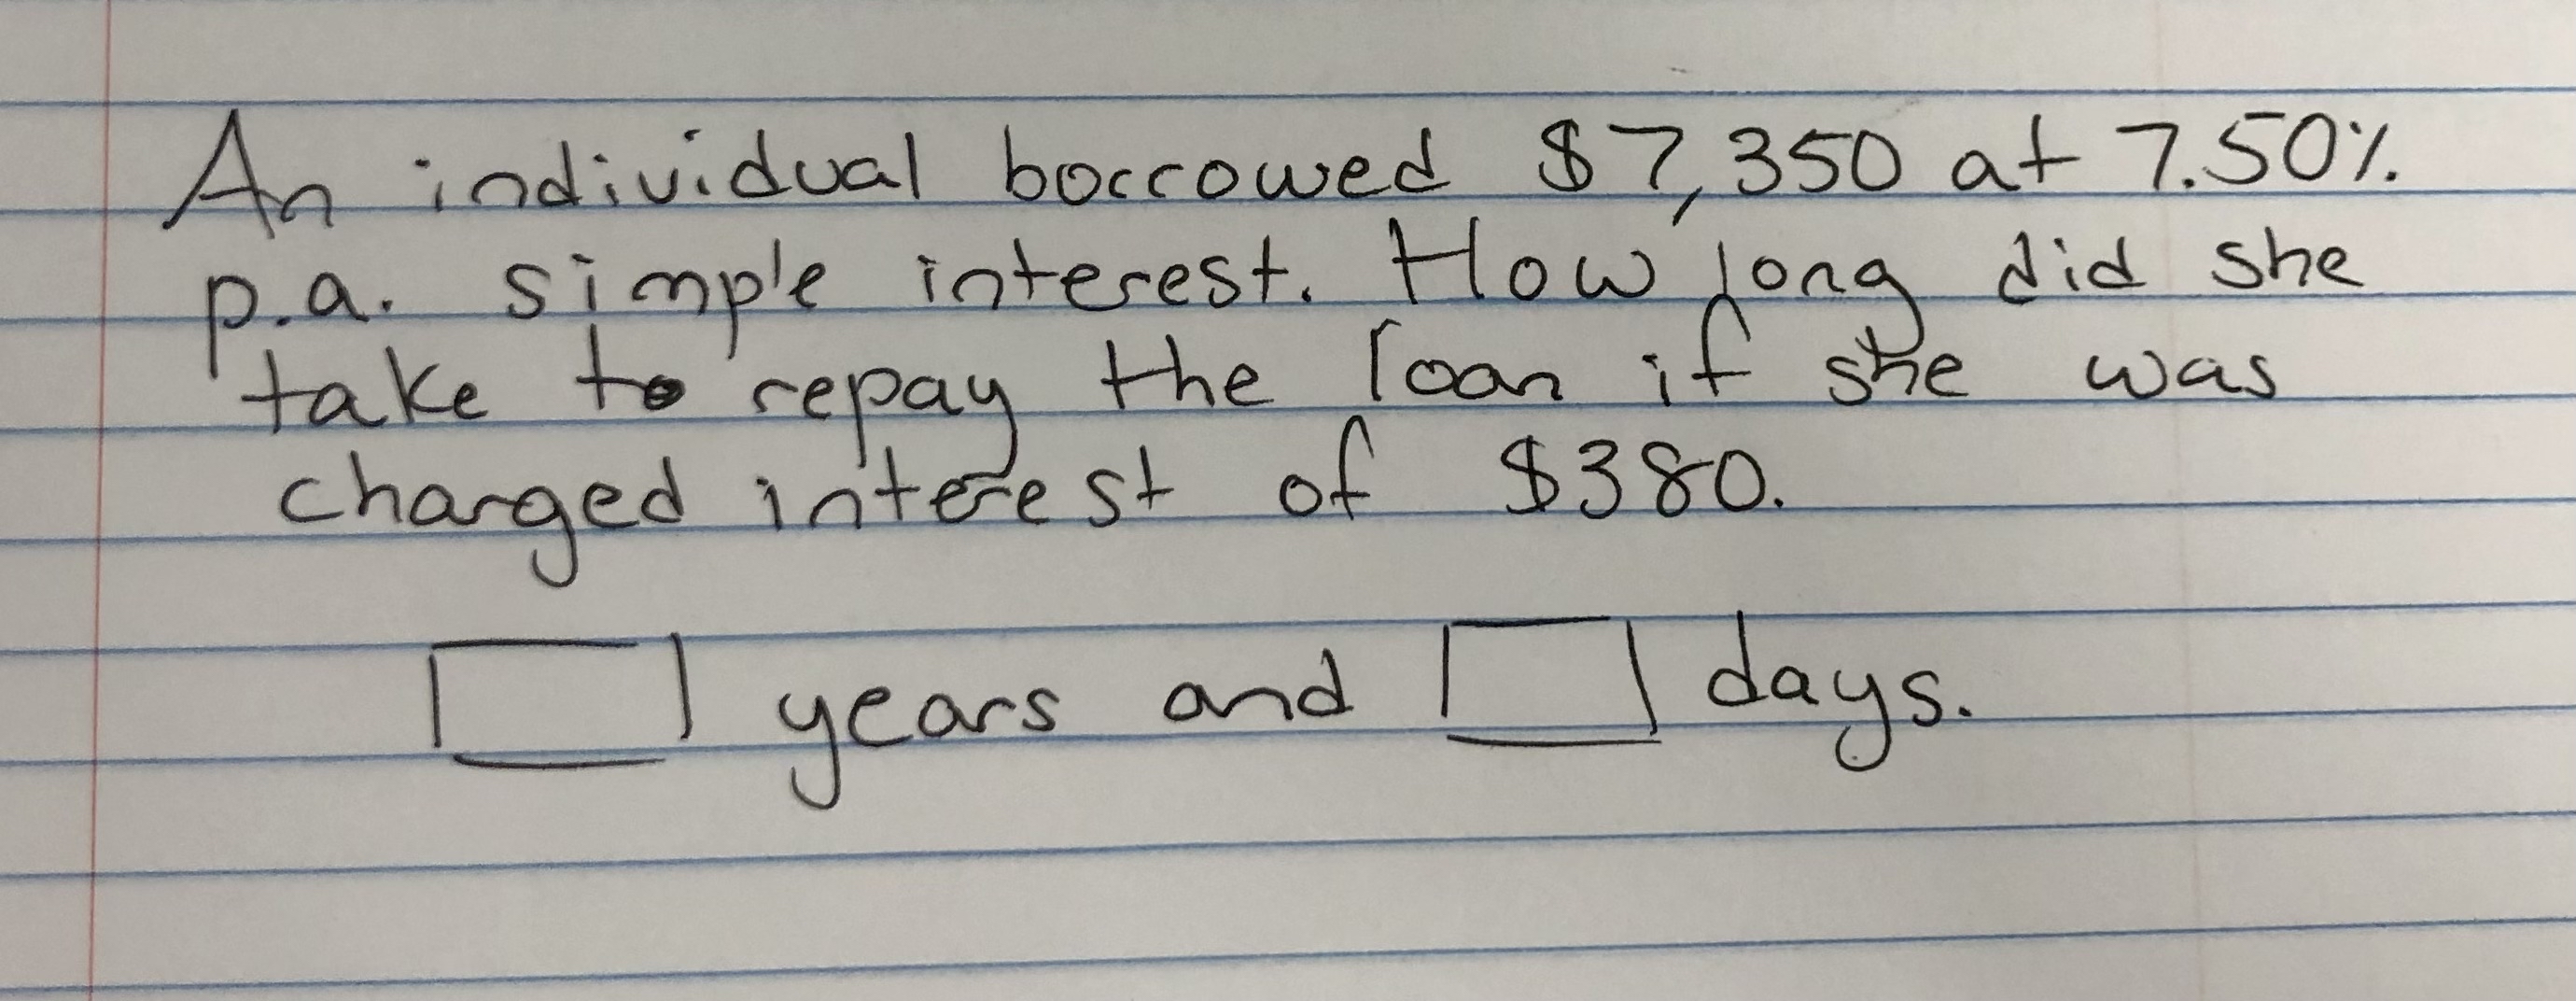 An individual borrowed $7,350 at 7.50%
p.a. simple interest. How long did she
take to repay the loan if she was
charged interest of $380.
years and days.